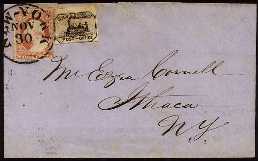 NEW-YORK
NOV
30
Mr Ezra Cornell
Ithaca
N.Y.